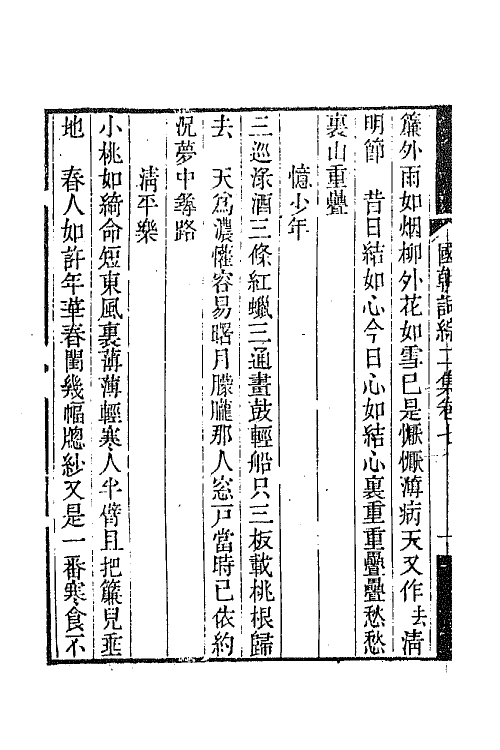 國朝詞綜二集卷七
簾外雨如烟柳外花如雪已是懨懨溽病天又作去淸
明節　昔日結如心今日心如結心裏重重疊疊愁愁
裏山重疊
憶少年
三巡淥酒三條紅蠟三通畫鼓輕船只三板載桃根歸
去　天爲濃懽容易曙月朦朧那人窓戸當時已依約
況夢中尋路
淸平樂
小桃如綺命短東風裏薄薄輕寒人半臂且把簾兒垂
地　春人如許年華春閨幾幅牕紗又是一番寒食不